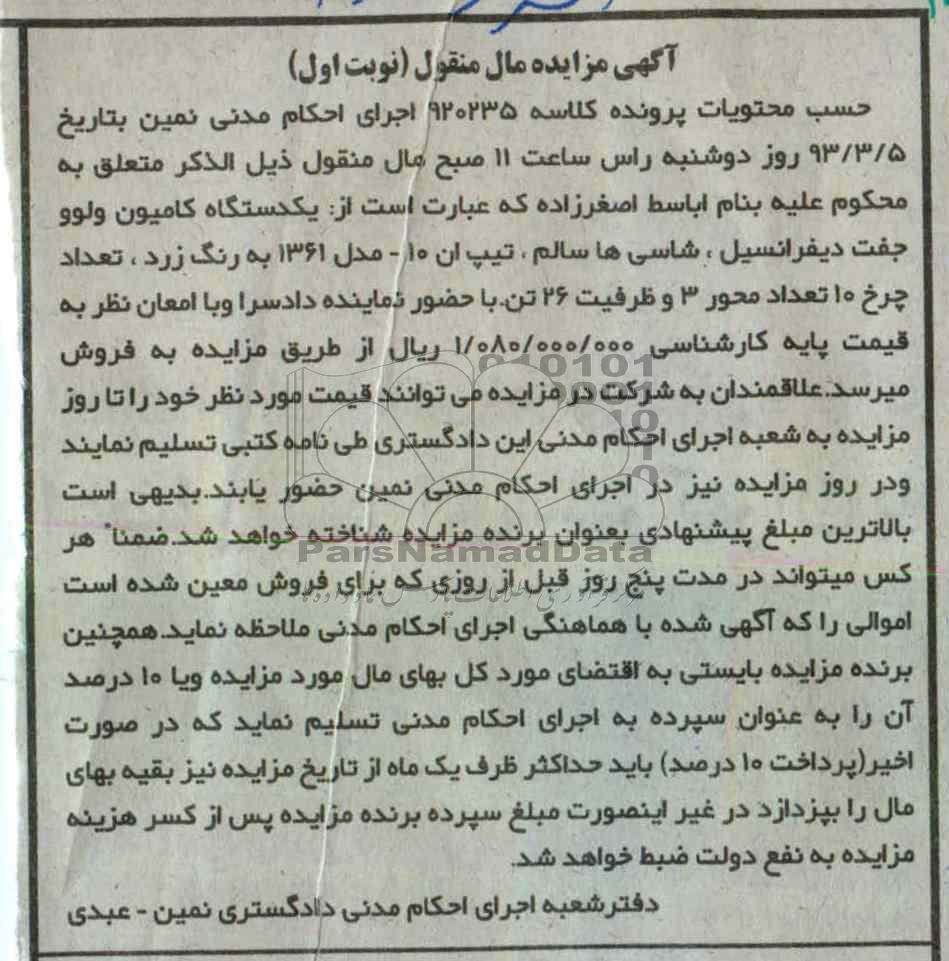 آگهی مزایده مال منقول (نوبت اول)
حسب محتویات پرونده کلاسه ۹۲۰۲۳۵ اجرای احکام مدنی نمین بتاریخ
۹۳/۳/۵ روز دوشنبه راس ساعت ۱۱ صبح مال منقول ذیل الذکر متعلق به
محکوم علیه بنام اباسط اصغرزاده که عبارت است از: یکدستگاه کامیون ولوو
جفت دیفرانسیل ، شاسی ها سالم ، تیپ ان ۱۰ - مدل ۱۳۶۱ به رنگ زرد ، تعداد
چرخ ۱۰ تعداد محور ۳ و ظرفیت ۲۶ تن.با حضور نماینده دادسرا وبا امعان نظر به
قیمت پایه کارشناسی ۱/۰۸۰/۰۰۰/۰۰۰ ریال از طریق مزایده به فروش
میرسد.علاقمندان به شرکت در مزایده می توانند قیمت مورد نظر خود را تا روز
مزایده به شعبه اجرای احکام مدنی این دادگستری طی نامه کتبی تسلیم نمایند
ودر روز مزایده نیز در اجرای احکام مدنی نمین حضور یابند.بدیهی است
بالاترین مبلغ پیشنهادی بعنوان برنده مزایده شناخته خواهد شد.ضمناً هر
ParsNamadData
کس میتواند در مدت پنج روز قبل از روزی که برای فروش معین شده است
اموالی را که آگهی شده با هماهنگی اجرای احکام مدنی ملاحظه نماید.همچنین
برنده مزایده بایستی به اقتضای مورد کل بهای مال مورد مزایده ویا ۱۰ درصد
آن را به عنوان سپرده به اجرای احکام مدنی تسلیم نماید که در صورت
اخیر(پرداخت ۱۰ درصد) باید حداکثر ظرف یک ماه از تاریخ مزایده نیز بقیه بهای
مال را بپردازد در غیر اینصورت مبلغ سپرده برنده مزایده پس از کسر هزینه
مزایده به نفع دولت ضبط خواهد شد.
دفترشعبه اجرای احکام مدنی دادگستری نمین - عبدی